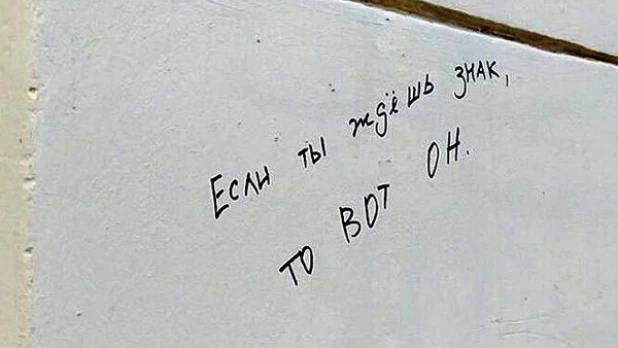 Если ты ждёшь знак,
то вот он.